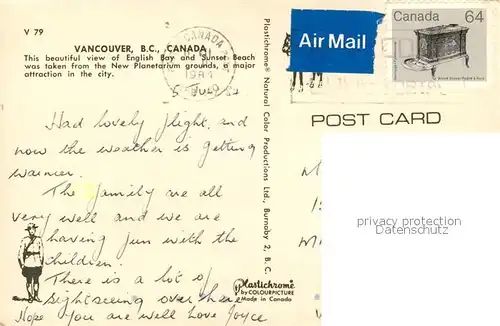 V 79
VANCOUVER, B.C., CANADA
This beautiful view of English Bay and Sunset Beach
was taken from the New Planetarium grounds, a major
attraction in the city.
CANADA
1984
5 JULY 84
Had lovely flight, and
now the weather is getting
warmer.
The family are all
very well and we are
having fun with the
children.
There is a lot of
sightseeing over here
Hope you are well Love Joyce
Plastichrome® Natural Color Productions Ltd., Burnaby 2, B. C.
Plastichrome®
by COLOURPICTURE
Made in Canada
Air Mail
Canada 64
POST CARD
privacy protection
Datenschutz